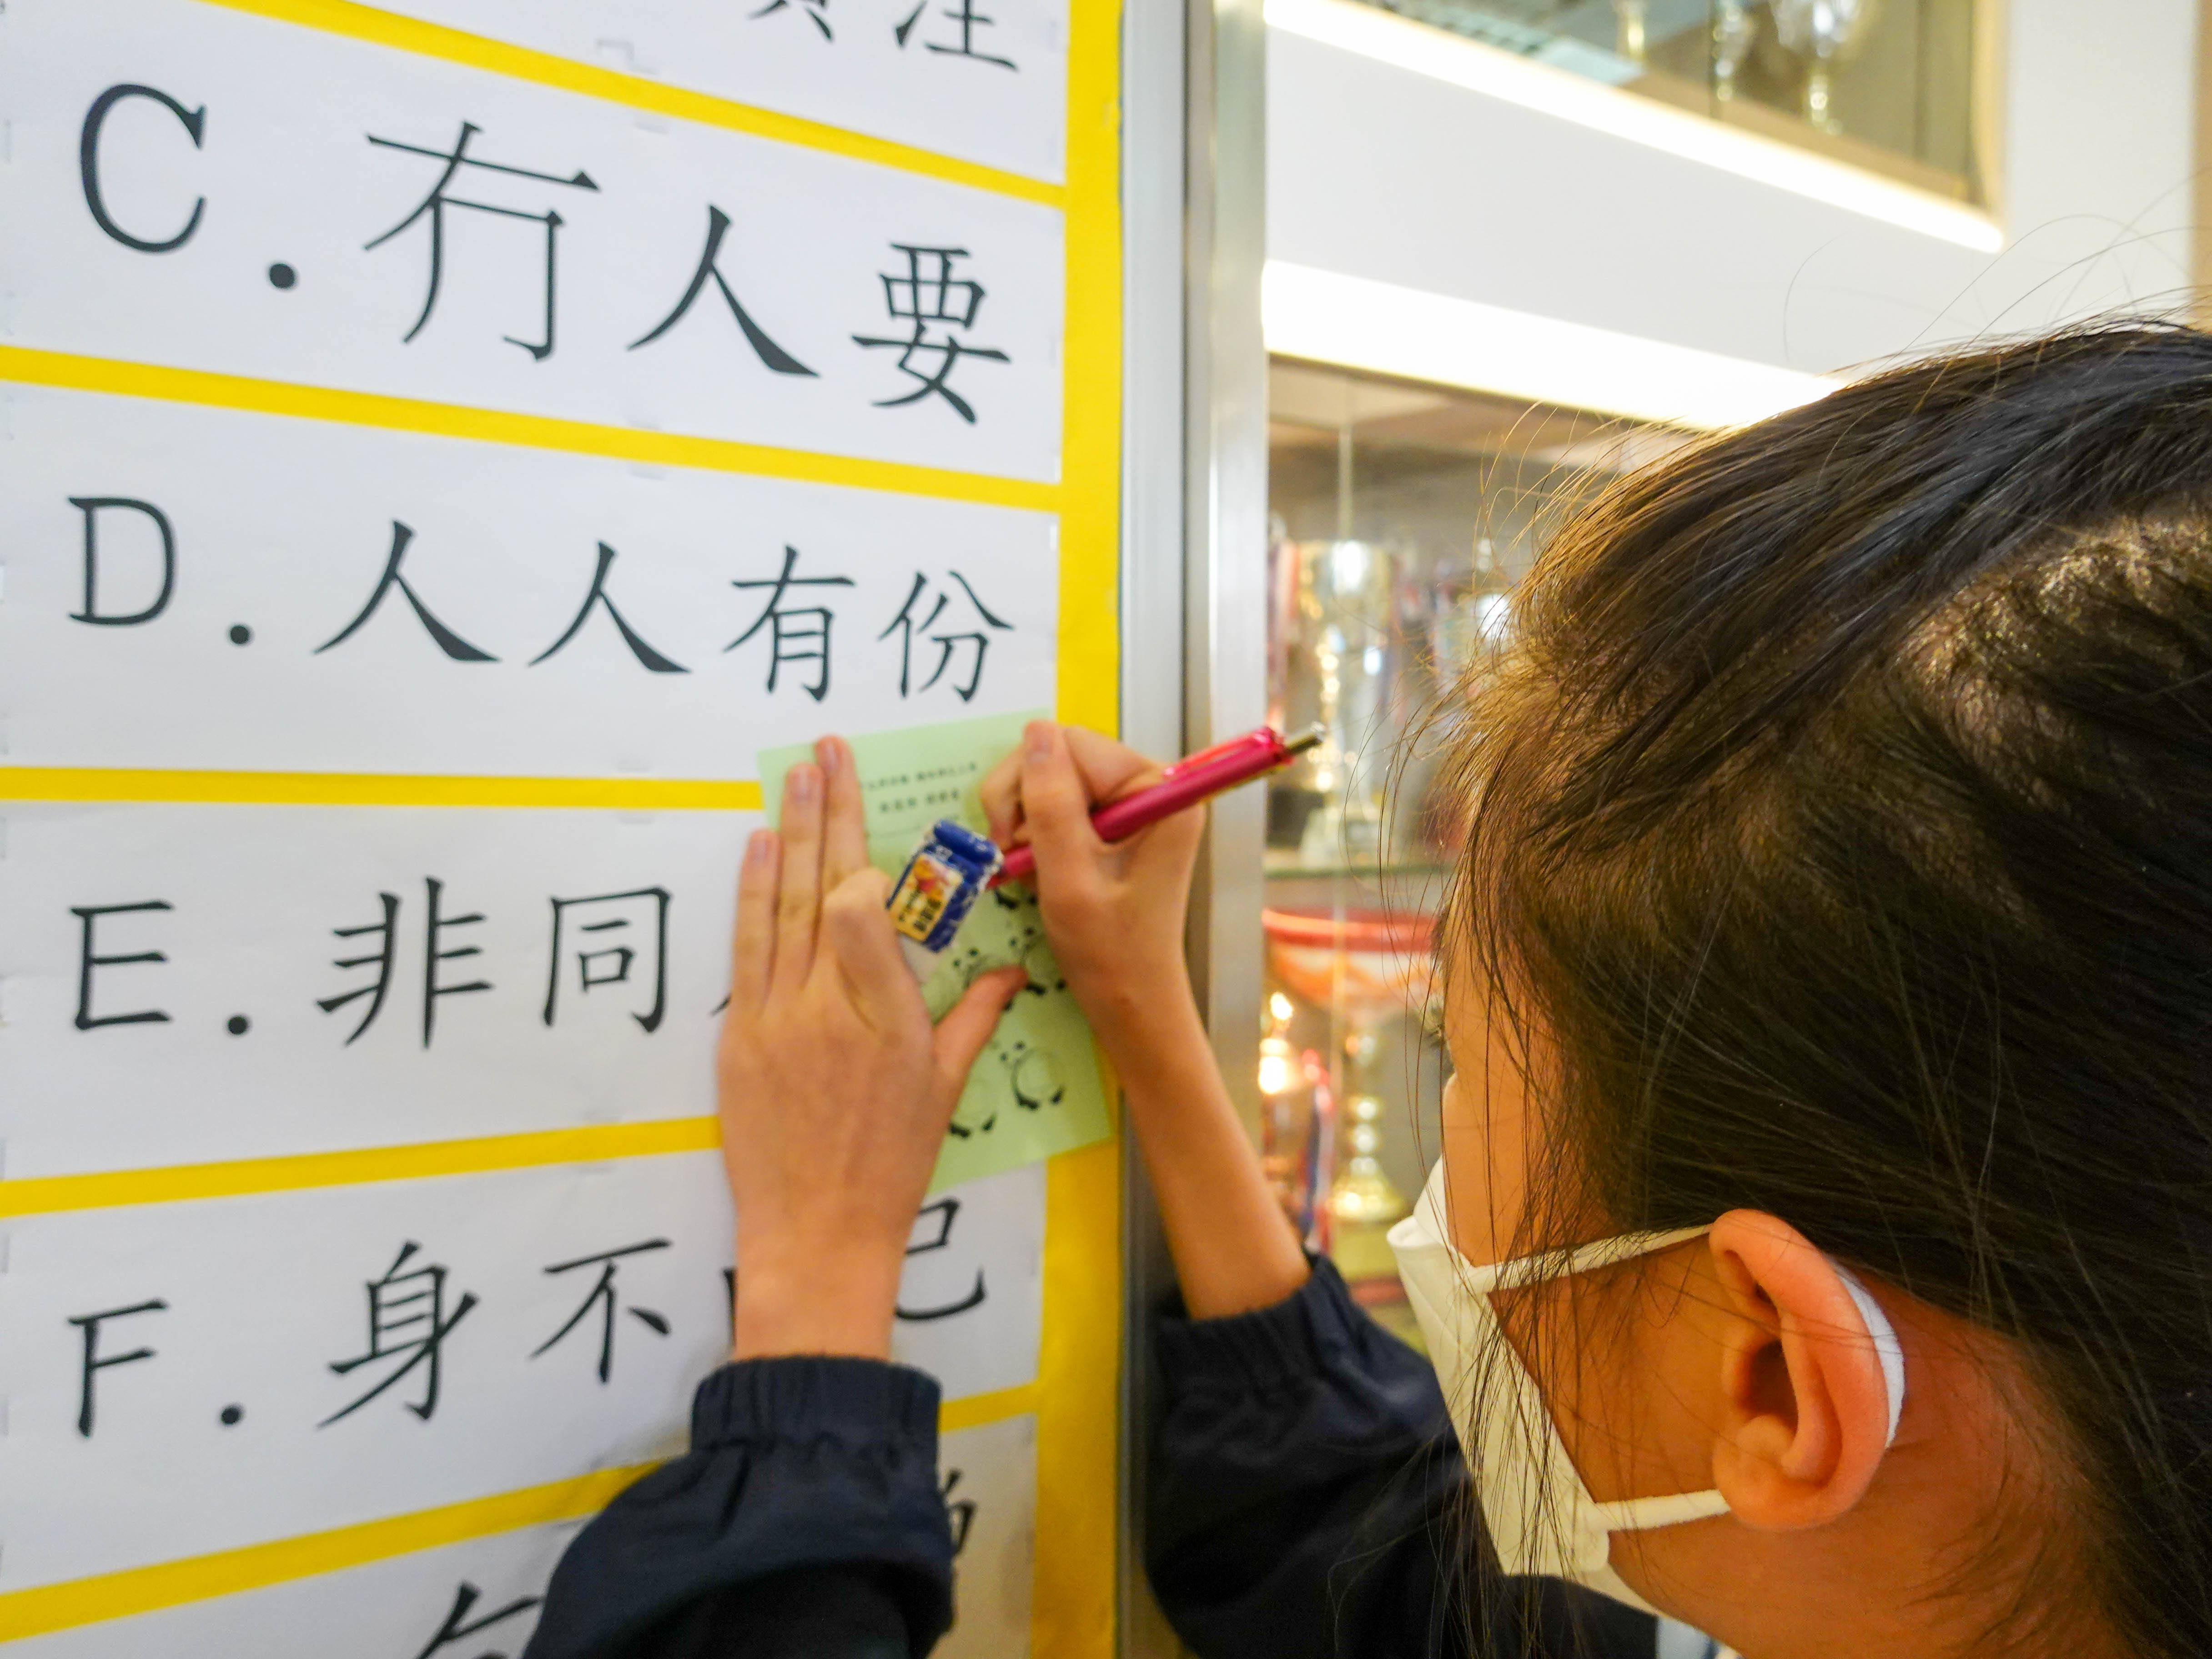 注
C.冇人要
D.人人有份
E.非同
F.身不 己